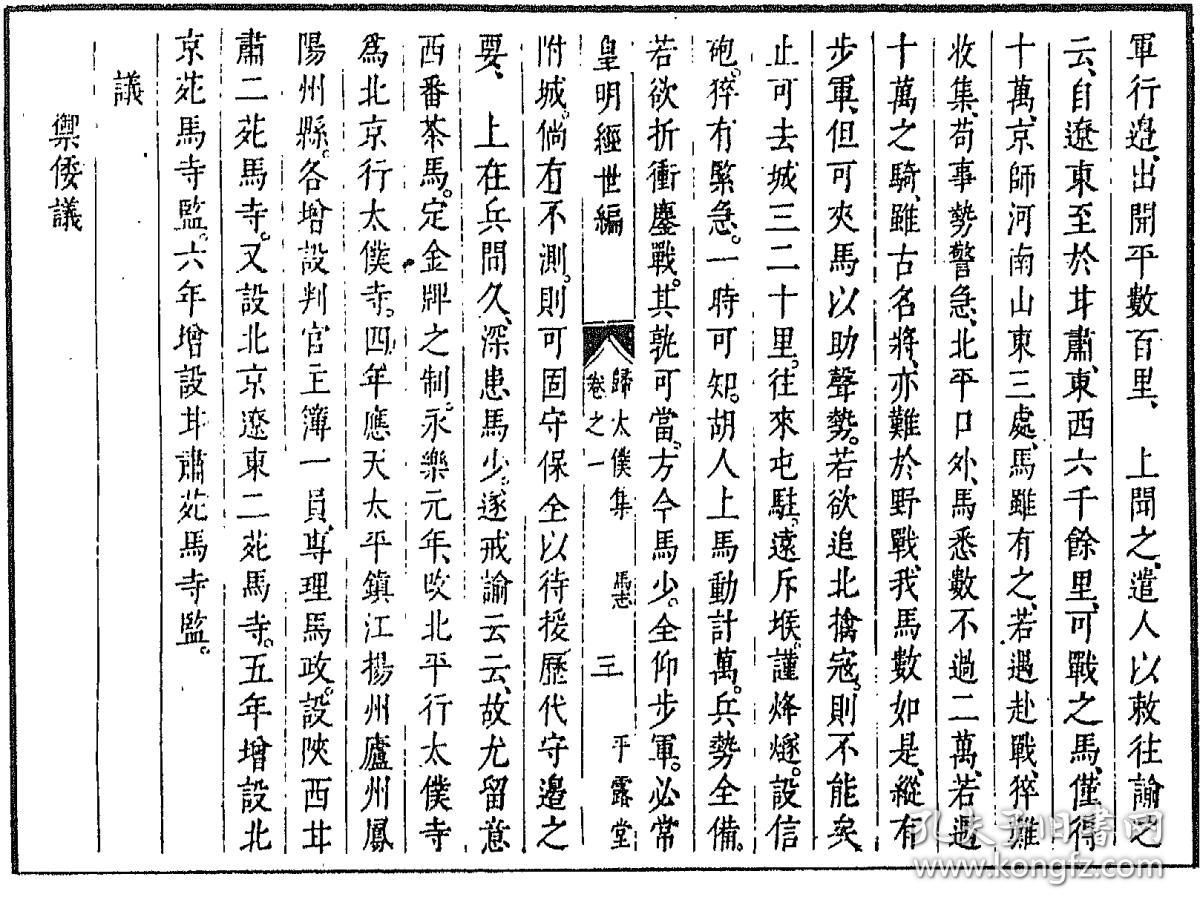 軍行邉、出開平數百里、　上聞之、遣人以敕往諭之
云、自遼東至於甘肅、東西六千餘里、可戰之馬、僅得
十萬、京師河南山東三處、馬雖有之、若遇赴戰、猝難
收集、苟事勢警急、北平口外、馬悉數不過二萬、若遇
十萬之騎、雖古名將、亦難於野戰、我馬數如是、縱有
步軍、但可夾馬以助聲勢。若欲追北擒寇、則不能矣、
止可去城三二十里。往來屯駐。遠斥堠。謹烽燧。設信
砲。猝有緊急。一時可知。胡人上馬動計萬。兵勢全備。
若欲折衝鏖戰。其孰可當。方今馬少。全仰步軍。必常
皇明經世編　歸太僕集　馬志　卷之一　三　平露堂
附城。倘有不測。則可固守保全以待援。歷代守邉之
要、　上在兵間久、深患馬少。遂戒諭云云、故尤留意
西番茶馬。定金牌之制。永樂元年、改北平行太僕寺
爲北京行太僕寺。四年應天太平鎮江揚州廬州鳳
陽州縣。各增設判官主簿一員、專理馬政。設陝西甘
肅二苑馬寺。又設北京遼東二苑馬寺。五年增設北
京苑馬寺監。六年增設甘肅苑馬寺監。
議
禦倭議
孔夫子旧書网
www.kongfz.com